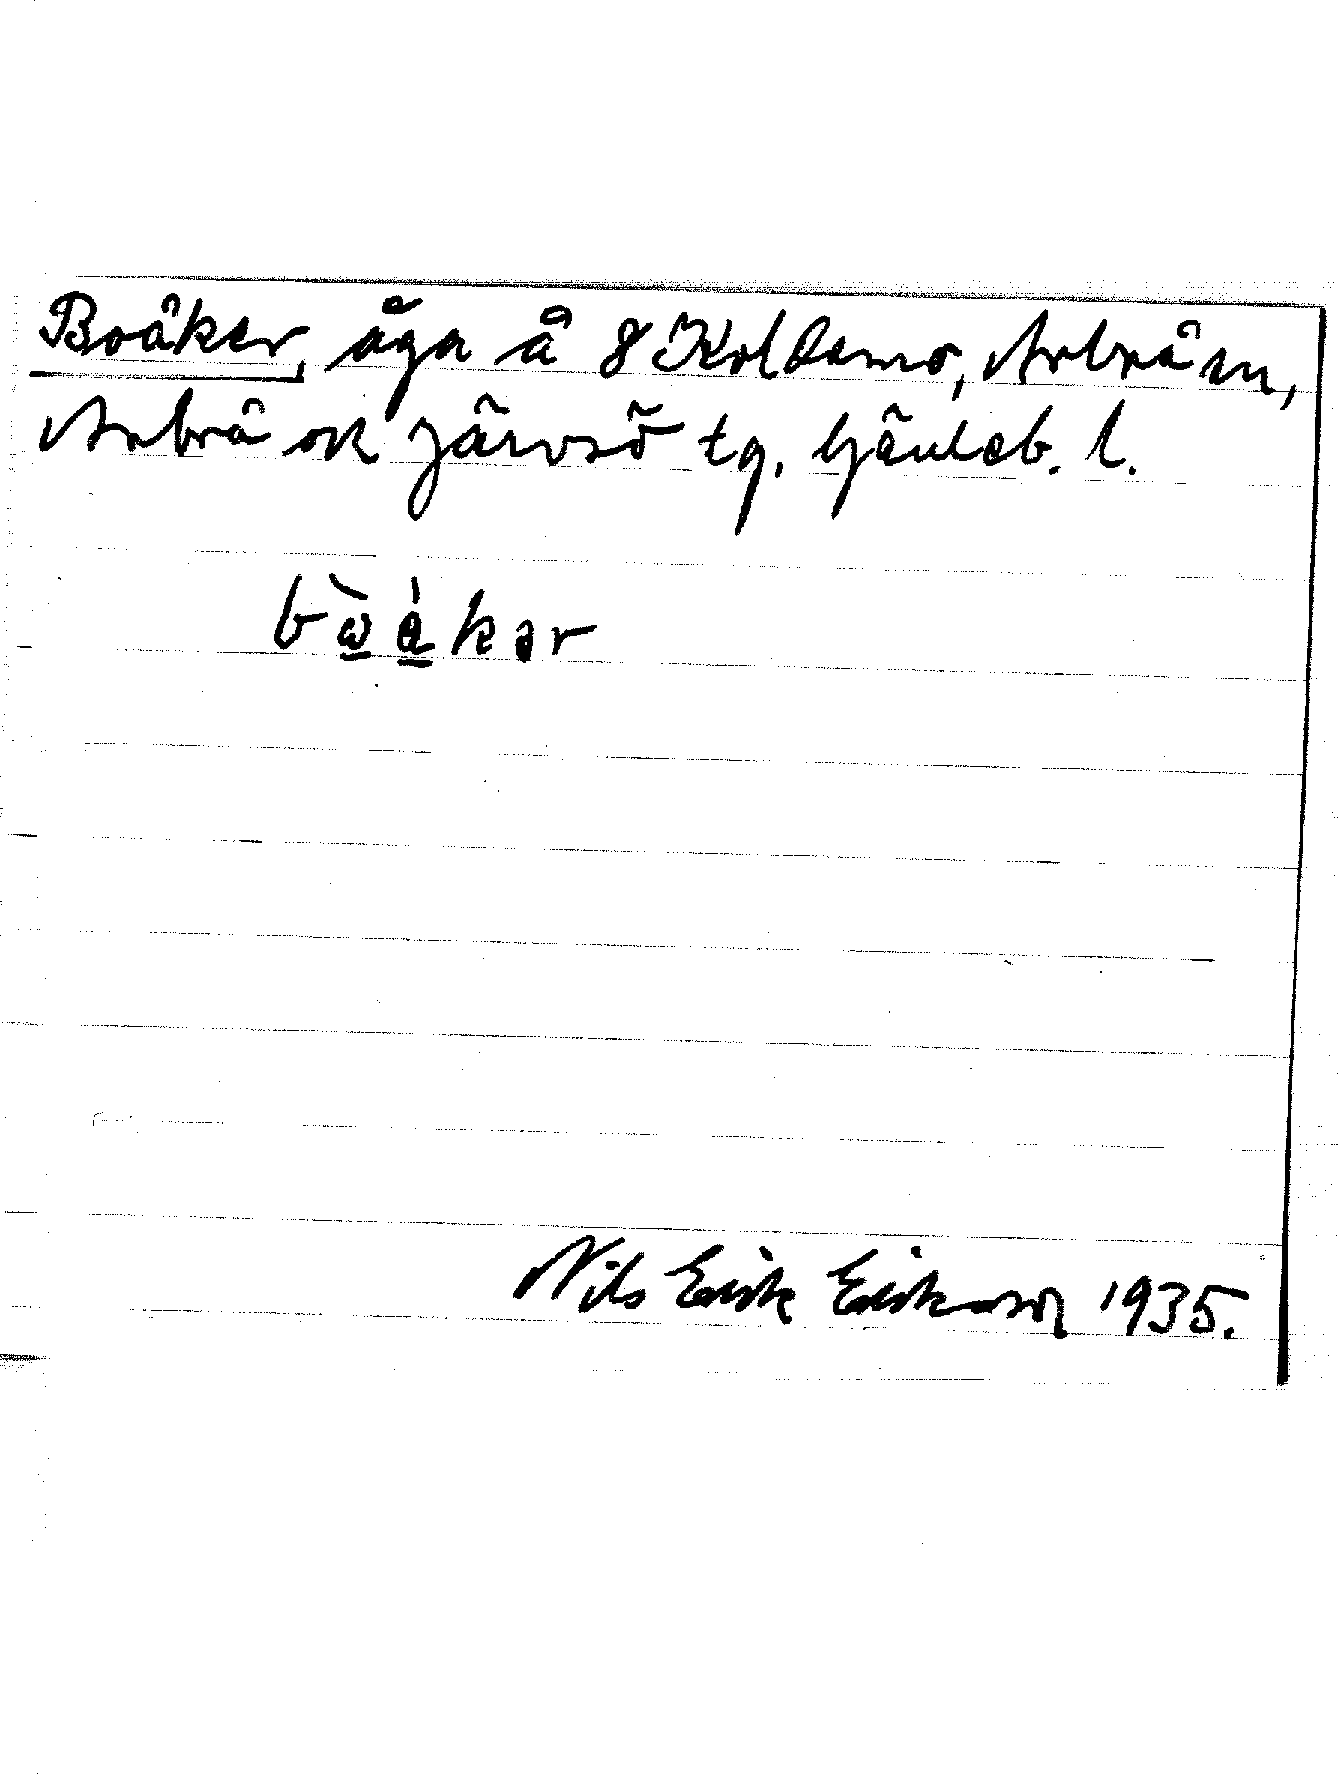 Boåker, äga å 8 Koldemo, Arbrå sn,
Arbrå ok Järvsö tg, Gävleb. l.
bὼàkər
Nils Erik Eriksson 1935.